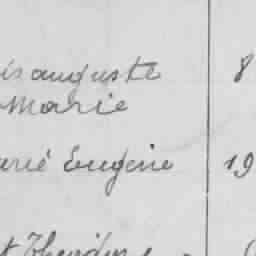 is auguste 8
Marie
arie Eugène 19